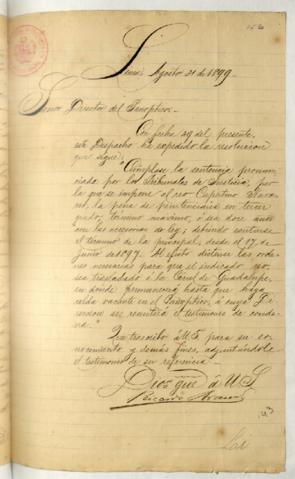 Lima, Agosto 31 de 1899.
Señor Director del Panóptico.
Con fecha 29 del presente,
este Despacho ha expedido la resolución
que sigue:
"Cúmplase la sentencia pronun-
ciada por los Tribunales de Justicia, por
la que se impone al reo Capitino
la pena de penitenciaría en tercer
grado, término máximo, ó sea doce años
con las accesorias de ley; debiendo contarse
el término de la principal, desde el 17 de
Junio de 1897. Al efecto díctense las órde-
nes necesarias para que el indicado reo
sea trasladado a la Cárcel de Guadalupe,
en donde permanecerá hasta que haya
celda vacante en el Panóptico, á cuya Di-
rección se remitirá el testimonio de conde-
na."
Que trascribo á US para su co-
nocimiento y demás fines, adjuntándole
el testimonio de su referencia.
Dios gue á US
Ricardo